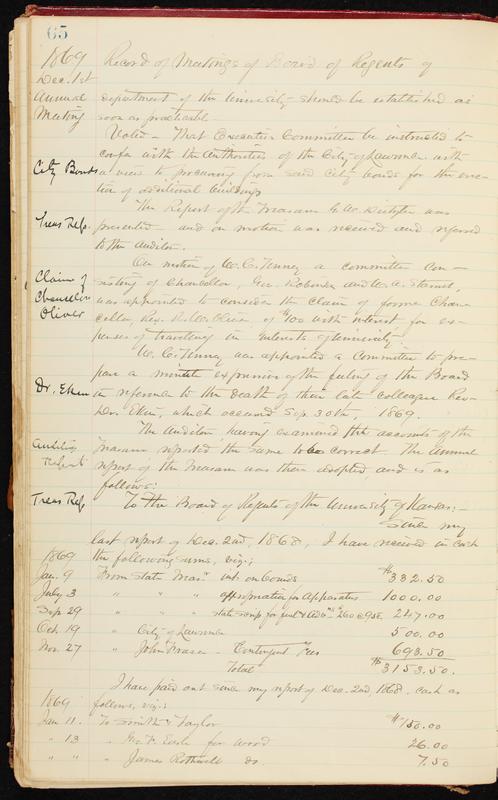 65
1869 Record of Meetings of Board of Regents of
Dec. 1st
Annual department of the University should be established as
Meeting soon as practicable.
Voted – That Executive Committee be instructed to
confer with the authorities of the City of Lawrence with
City Bonds a view to procuring from said City bonds for the erec-
tion of additional buildings
The Report of the Treasurer G. W. Deitzler was
Treas Rep. presented – and on motion was received and referred
to the Auditor.
On motion of W. C. Tenney a committee con-
Claim of sisting of Chancellor, Gov. Robinson and W. A. Starrett,
Chancellor was appointed to consider the claim of former Chan-
Oliver cellor, Rev. R. W. Oliver of $100 with interest for ex-
penses of traveling in interests of university.
W. C. Tenney was appointed a Committee to pre-
pare a minute expressive of the feeling of the Board
Dr. Ekin in reference to the death of their late colleague Rev.
Dr. Ekin, which occurred Sep. 30th, 1869.
The Auditor having examined the accounts of the
Auditing Treasurer reported the same to be correct. The annual
Report report of the Treasurer was then adopted, and is as
follows:
Treas Rep. To the Board of Regents of the University of Kansas:–
Since my
last report of Dec. 2nd, 1868, I have received in cash
1869 the following sums, viz.;
Jan. 9 From State Treasr int. on bonds $332.50
July 3 " " " appropriation for Apparatus 1000.00
Sep. 29 " " " State scrip for $260 @ 95¢ 247.00
Oct. 19 " City of Lawrence 500.00
Nov. 27 " John Fraser – Contingent Fees 693.50
Total $3153.50.
I have paid out since my report of Dec. 2nd, 1868, cash as
1869 follows, viz.;
Jan 11. To Smith & Taylor $150.00
" 13 " Geo. F. Earle for wood 26.00
" " " James Rothwell do. 7.50